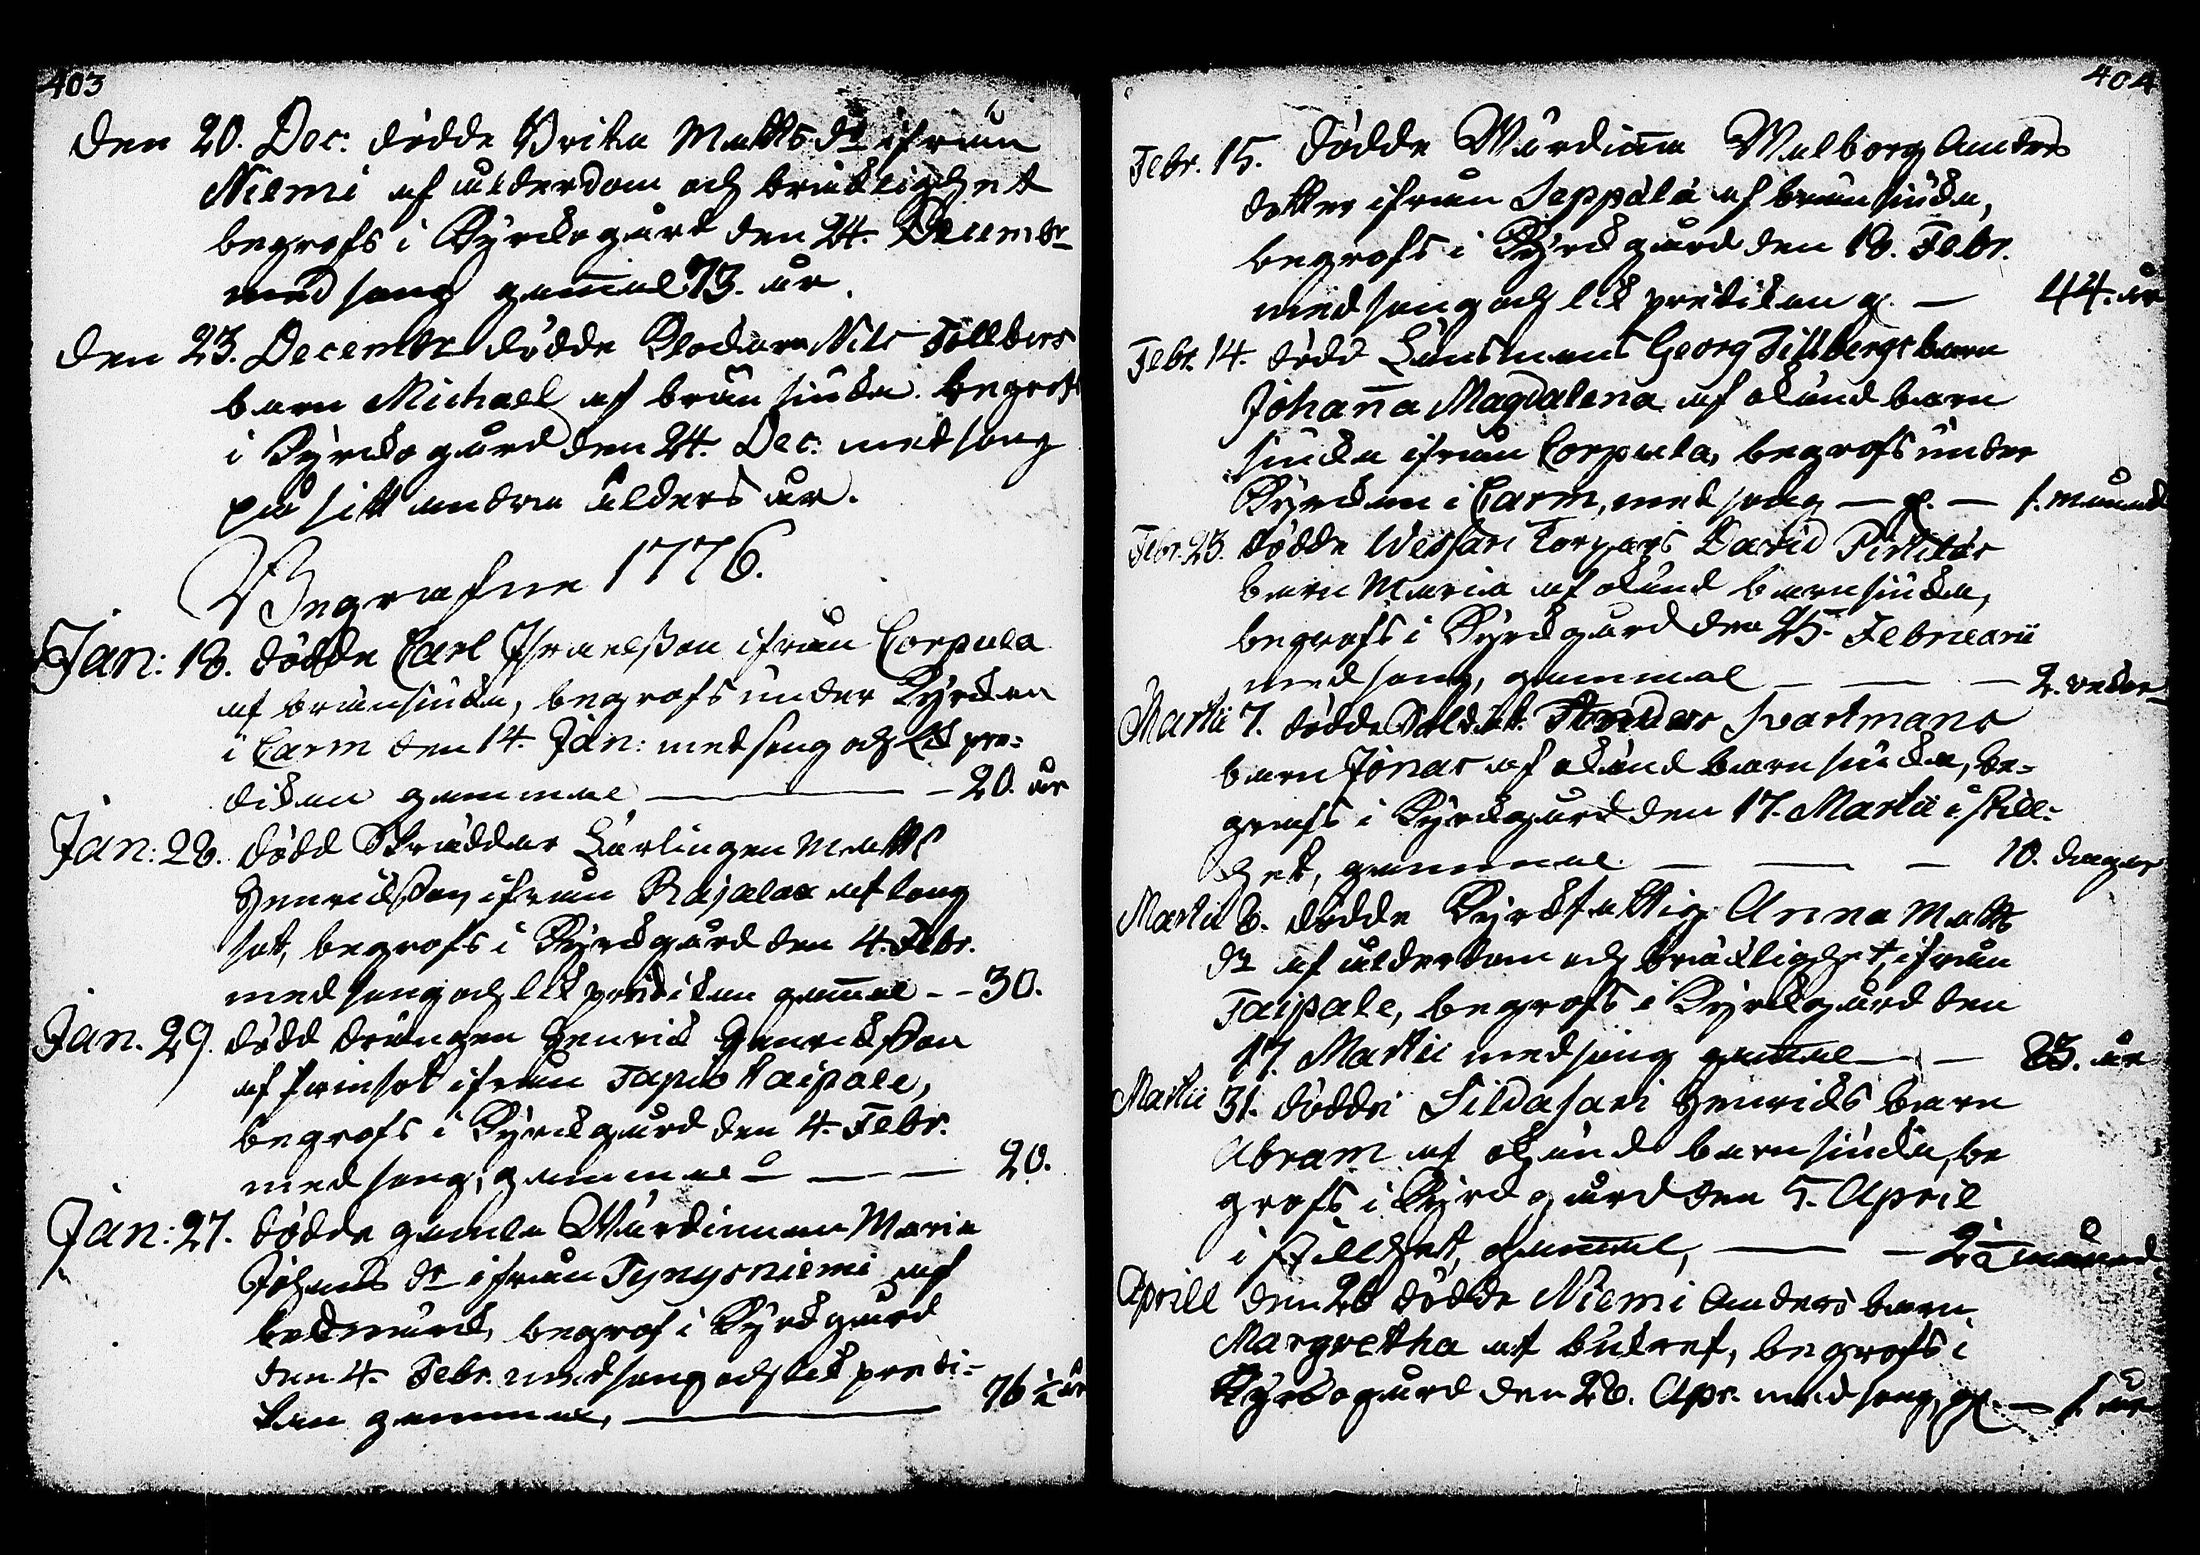 403
den 20. Dec: dödde Brita Matts dr ifrån
Niemi af ålderdom och bräcklighet
begrofs i Kyrckogård den 24. Decembr
med sång gam̅al 73. år.
den 23. Decembr dödde Klockare Nils Tällbers
barn Michael af bröst siuka. begrofs
i Kyrckogård den 24. Dec: med sång
på sitt andra ålders år.
Begrafne 1776.
Jan: 18. dödde Carl Israelsson ifrån Corpula
af brånsiuka, begrofs under Kyrckan
i Carm den 14. Jan: med sång och lik pre-
dikan gammal — 20. år
Jan: 28. dödd Skräddar Lärlingen Matts
Henricksson ifrån Rajalax af lång
sot, begrofs i Kyrckgård den 4. Febr.
med sång och lik predikan gam̅al - - 30.
Jan. 29. dödd drängen Henrick Henricksson
af ifrån Tapio Taipale,
begrofs i Kyrckgård den 4. Febr.
med sång, gammal — — — 20.
Jan: 27. dödde gamla Wärdinnan Maria
Johans dr ifrån Tynysniemi af
begrof i Kyrckgård
den 4. Febr. med sång och lik predi-
kan gammal, — 76 ½ år
404
Febr. 15. dödde Wärdin̅a Walborg Anders
dotter ifrån Seppälä af brånsiuka,
begrofs i Kyrckgård den 18. Febr.
med sång och lik predikan g. — 44. år
Febr. 14. dödd Länsmans Georg Tillbergs barn
Johan̅a Magdalena af okänd barn
siuka ifrån Corpula, begrofs under
Kyrckan i Carm, med sång — g. — 1. månad
Febr. 23. dödde Wessari Torpars David Pirttiläs
barn Maria af okänd barnsiuka,
begrofs i Kyrckgård den 25. Februarii
med sång, gammal — — — 2. veckor
Martii 7. dödde Soldat Svartmans
barn Jonas af okänd barnsiuka, be-
grofs i Kyrckgård den 17. Martii i still-
het, gammal — — — 10. dagar
Martii 8. dödde Kyrckfattig Anna Matts
dr af ålderdom och bräcklighet, ifrån
Taipale, begrofs i Kyrckgård den
17. Martii med sång gam̅al — — 83. år
Martii 31. dödde Sildasari Henricks barn
Abram af okänd barnsiuka, be
grofs i Kyrckgård den 5. April
i stillhet, gam̅al, — — 2½ månad
Aprill den 26 dödde Niemi Anders barn
Margretha af bukref, begrofs i
Kyrckogård den 28. Apr. med sång, g. — 1. år